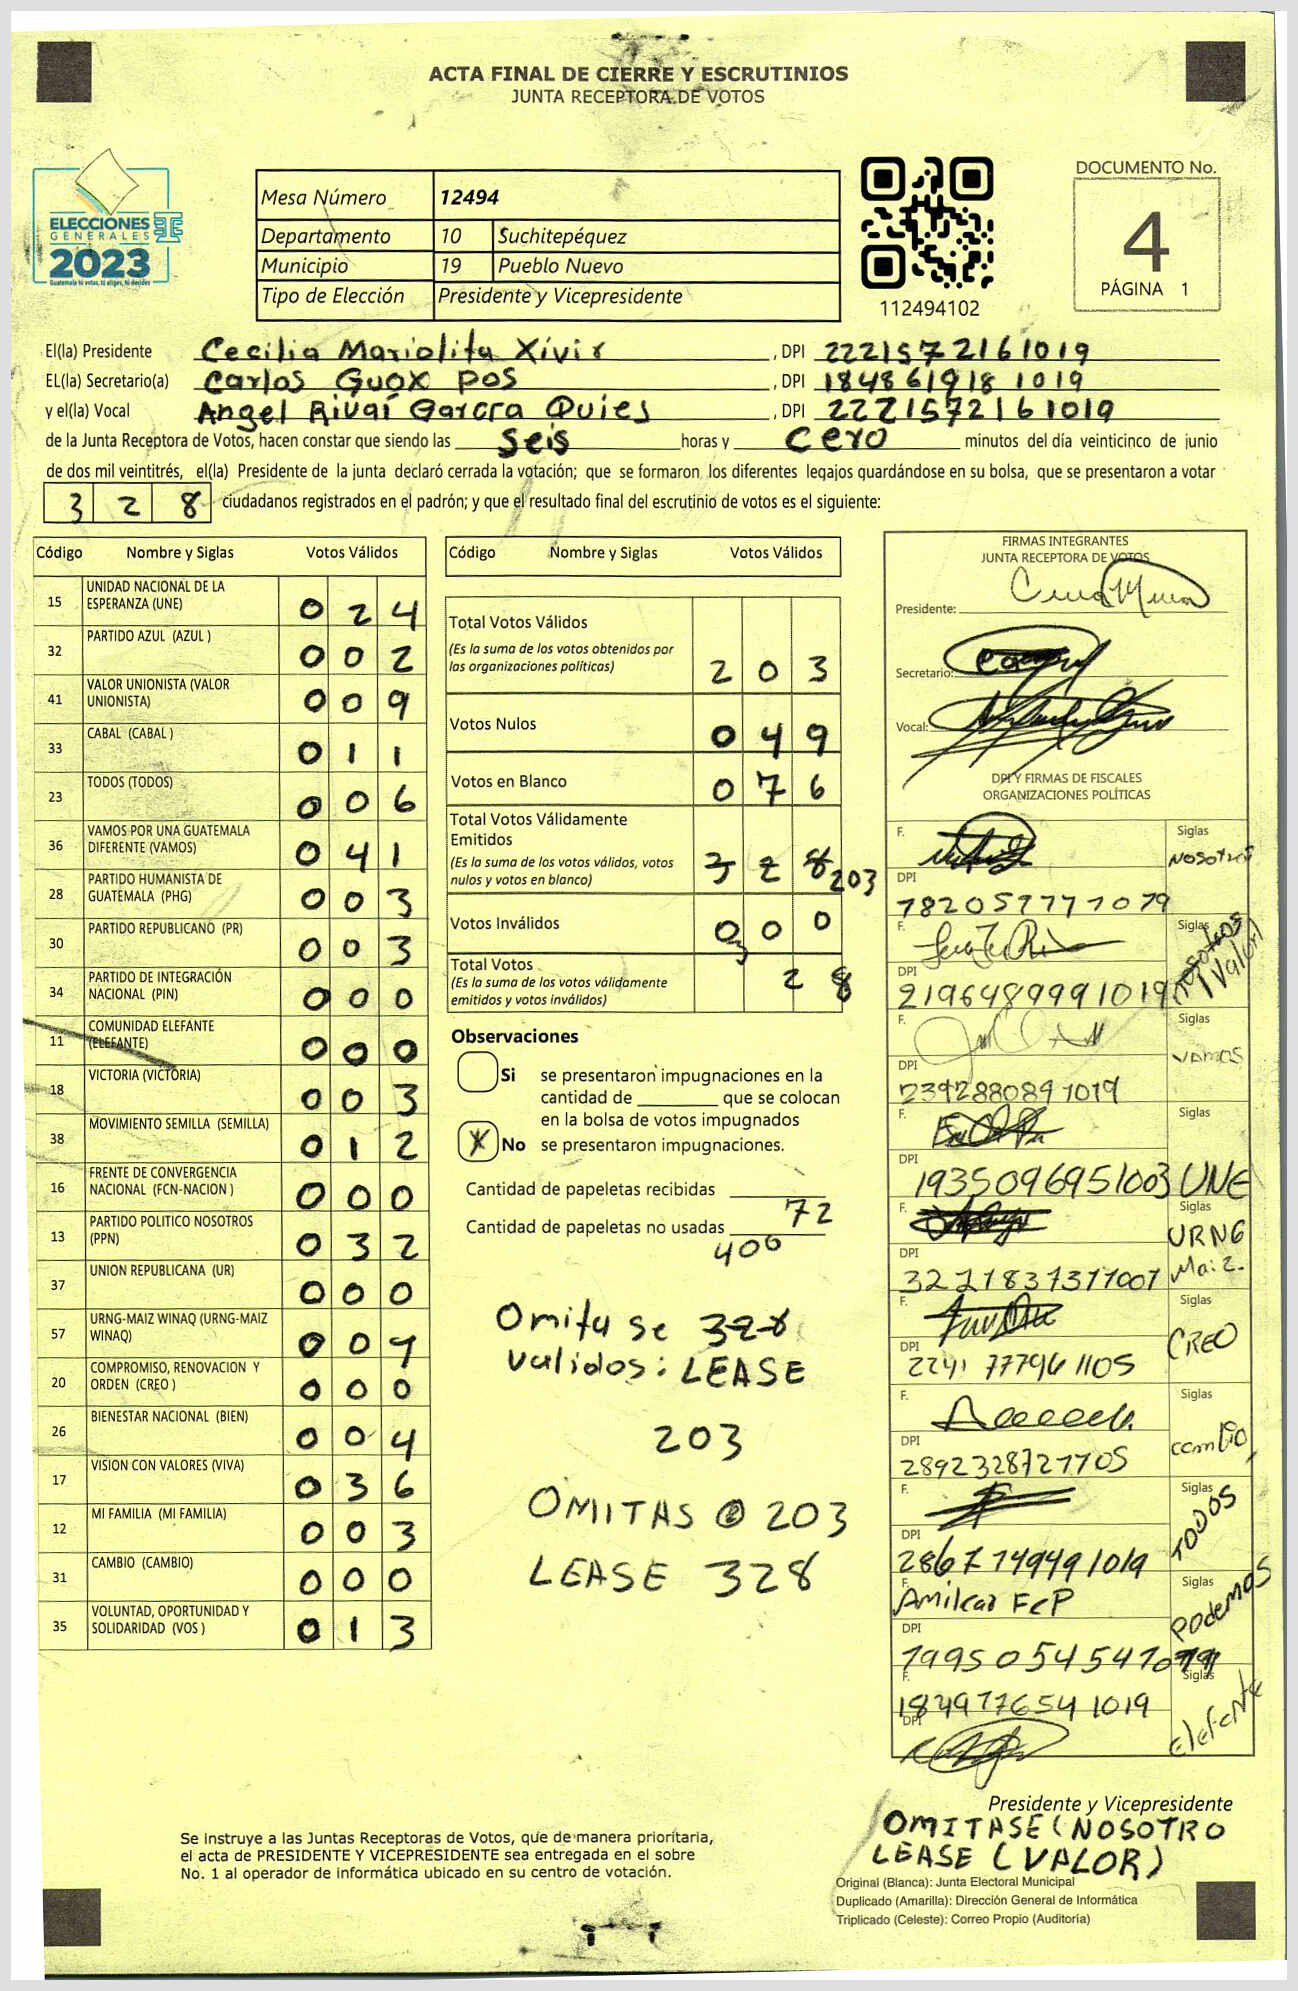 ACTA FINAL DE CIERRE Y ESCRUTINIOS
JUNTA RECEPTORA DE VOTOS
ELECCIONES
GENERALES
2023
Guatemala tú votas, tú eliges, tú decides
Mesa Número 12494
Departamento 10 Suchitepéquez
Municipio 19 Pueblo Nuevo
Tipo de Elección Presidente y Vicepresidente
112494102
DOCUMENTO No.
4
PÁGINA 1
El(la) Presidente Cecilia Mariolita Xivir , DPI 2221572161019
EL(la) Secretario(a) Carlos Guox Pos , DPI 1848619181019
y el(la) Vocal Angel Rivaí Garcra Quies , DPI 2221572161019
de la Junta Receptora de Votos, hacen constar que siendo las Seis horas y Cero minutos del día veinticinco de junio
de dos mil veintitrés, el(la) Presidente de la junta declaró cerrada la votación; que se formaron los diferentes legajos quardándose en su bolsa, que se presentaron a votar
3 2 8 ciudadanos registrados en el padrón; y que el resultado final del escrutinio de votos es el siguiente:
Código Nombre y Siglas Votos Válidos
15 UNIDAD NACIONAL DE LA ESPERANZA (UNE) 0 2 4
32 PARTIDO AZUL (AZUL ) 0 0 2
41 VALOR UNIONISTA (VALOR UNIONISTA) 0 0 9
33 CABAL (CABAL ) 0 1 1
23 TODOS (TODOS) 0 0 6
36 VAMOS POR UNA GUATEMALA DIFERENTE (VAMOS) 0 4 1
28 PARTIDO HUMANISTA DE GUATEMALA (PHG) 0 0 3
30 PARTIDO REPUBLICANO (PR) 0 0 3
34 PARTIDO DE INTEGRACIÓN NACIONAL (PIN) 0 0 0
11 COMUNIDAD ELEFANTE (ELEFANTE) 0 0 0
18 VICTORIA (VICTORIA) 0 0 3
38 MOVIMIENTO SEMILLA (SEMILLA) 0 1 2
16 FRENTE DE CONVERGENCIA NACIONAL (FCN-NACION ) 0 0 0
13 PARTIDO POLITICO NOSOTROS (PPN) 0 3 2
37 UNION REPUBLICANA (UR) 0 0 0
57 URNG-MAIZ WINAQ (URNG-MAIZ WINAQ) 0 0 1
20 COMPROMISO, RENOVACION Y ORDEN (CREO ) 0 0 0
26 BIENESTAR NACIONAL (BIEN) 0 0 4
17 VISION CON VALORES (VIVA) 0 3 6
12 MI FAMILIA (MI FAMILIA) 0 0 3
31 CAMBIO (CAMBIO) 0 0 0
35 VOLUNTAD, OPORTUNIDAD Y SOLIDARIDAD (VOS ) 0 1 3
Código Nombre y Siglas Votos Válidos
Total Votos Válidos
(Es la suma de los votos obtenidos por
las organizaciones políticas) 2 0 3
Votos Nulos 0 4 9
Votos en Blanco 0 7 6
Total Votos Válidamente
Emitidos
(Es la suma de los votos válidos, votos
nulos y votos en blanco) 3 2 8 203
Votos Inválidos 0 0 0
Total Votos
(Es la suma de los votos válidamente
emitidos y votos inválidos) 3 2 8
Observaciones
Si se presentaron impugnaciones en la
cantidad de ________ que se colocan
en la bolsa de votos impugnados
X No se presentaron impugnaciones.
Cantidad de papeletas recibidas
72
Cantidad de papeletas no usadas
400
Omita se 328
validos: LEASE
203
OMITAS 203
LEASE 328
FIRMAS INTEGRANTES
JUNTA RECEPTORA DE VOTOS
Presidente:
Secretario:
Vocal:
DPI Y FIRMAS DE FISCALES
ORGANIZACIONES POLÍTICAS
F. Siglas
NOSOTROS
DPI
F. Siglas
NOSOTROS
(Valor)
DPI
2196489991019
F. Siglas
VAMOS
DPI
2392880891019
F. Siglas
DPI
1935096951003 UNE
F. Siglas
URNG
Maiz.
DPI
F. Siglas
CREO
DPI
2241777961105
F. Siglas
cambio
DPI
F. Siglas
TODOS
DPI
F. Siglas
Amilcar
Podemos
DPI
F. Siglas
Elefante
DPI
Presidente y Vicepresidente
OMITASE (NOSOTRO
LEASE (VALOR)
Se instruye a las Juntas Receptoras de Votos, que de manera prioritaria,
el acta de PRESIDENTE Y VICEPRESIDENTE sea entregada en el sobre
No. 1 al operador de informática ubicado en su centro de votación.
Original (Blanca): Junta Electoral Municipal
Duplicado (Amarilla): Dirección General de Informática
Triplicado (Celeste): Correo Propio (Auditoría)